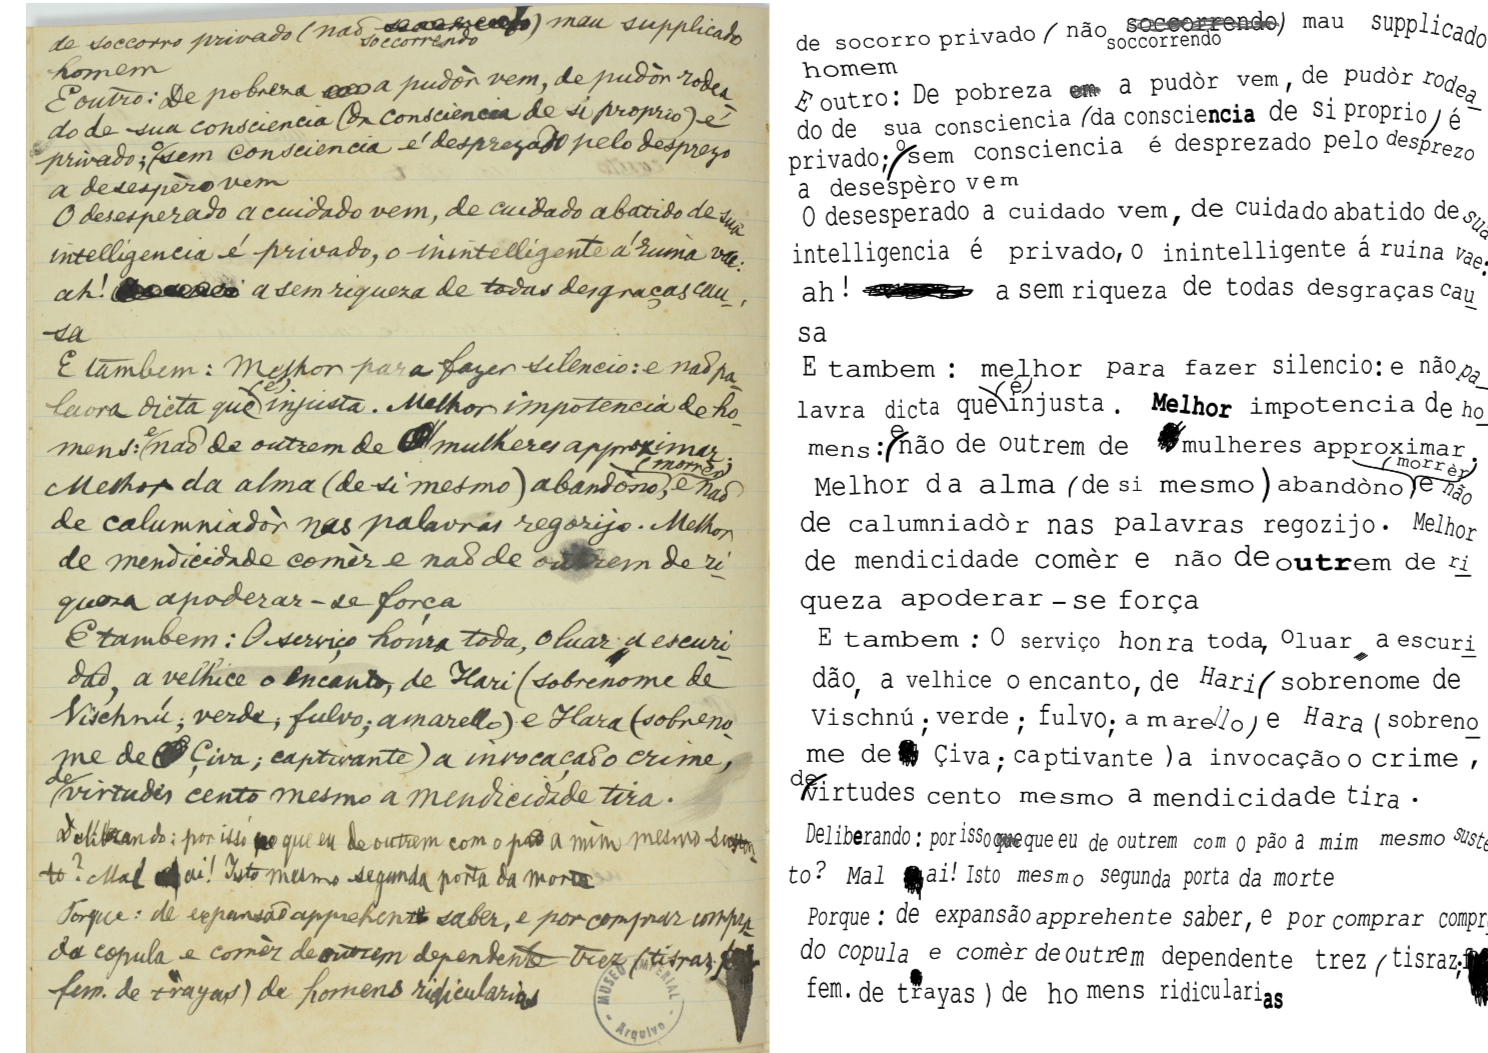 de soccorro privado (não soccorrendo) mau supplicado
soccorrendo
homem
E outro: De pobreza a pudòr vem, de pudòr rodea_
do de sua consciencia (da consciencia de si proprio) é
privado; o sem consciencia é desprezado pelo desprezo
a desespèro vem
O desesperado a cuidado vem, de cuidado abatido de sua
intelligencia é privado, o inintelligente á ruina vae:
ah! a sem riqueza de todas desgraças cau_
sa
E tambem: Melhor para fazer silencio: e não pa_
lavra dicta que (é) injusta. Melhor impotencia de ho
mens: e não de outrem de mulheres approximar.
(morrèr)
Melhor da alma (de si mesmo) abandòno, e não
de calumniadòr nas palavras regozijo. Melhor
de mendicidade comèr e não de outrem de ri_
queza apoderar-se força
E tambem: O serviço honra toda, O luar, a escuri_
dão, a velhice o encanto, de Hari (sobrenome de
Vischnú; verde; fulvo; amarello) e Hara (sobreno_
me de Çiva; captivante) a invocação o crime,
de virtudes cento mesmo a mendicidade tira.
Deliberando: por isso que eu de outrem com o pão a mim mesmo susten_
to? Mal ai! Isto mesmo segunda porta da morte
Porque: de expansão apprehente saber, e por comprar compra_
da copula e comèr de outrem dependente trez (tisraz,
fem. de trayas) de homens ridicularias
MUSEO IMPERIAL
- Arquivo -
de socorro privado (não soccorrendo) mau supplicado
soccorrendo
homem
E outro: De pobreza em a pudòr vem, de pudòr rodea_
do de sua consciencia (da consciencia de si proprio) é
privado; o sem consciencia é desprezado pelo desprezo
a desespèro vem
O desesperado a cuidado vem, de cuidado abatido de sua
intelligencia é privado, o inintelligente á ruina vae:
ah! a sem riqueza de todas desgraças cau_
sa
E tambem: melhor para fazer silencio: e não pa_
lavra dicta que (é) injusta. Melhor impotencia de ho_
mens: e não de outrem de mulheres approximar.
(morrèr)
Melhor da alma (de si mesmo) abandòno) e não
de calumniadòr nas palavras regozijo. Melhor
de mendicidade comèr e não de outrem de ri
queza apoderar-se força
E tambem: O serviço honra toda, O luar, a escuri
dão, a velhice o encanto, de Hari (sobrenome de
Vischnú; verde; fulvo; amarello) e Hara (sobreno
me de Çiva; captivante) a invocação o crime,
de virtudes cento mesmo a mendicidade tira.
Deliberando: por isso que que eu de outrem com o pão a mim mesmo suste
to? Mal ai! Isto mesmo segunda porta da morte
Porque: de expansão apprehente saber, e por comprar compr
do copula e comèr de outrem dependente trez (tisraz;
fem. de trayas) de homens ridicularias